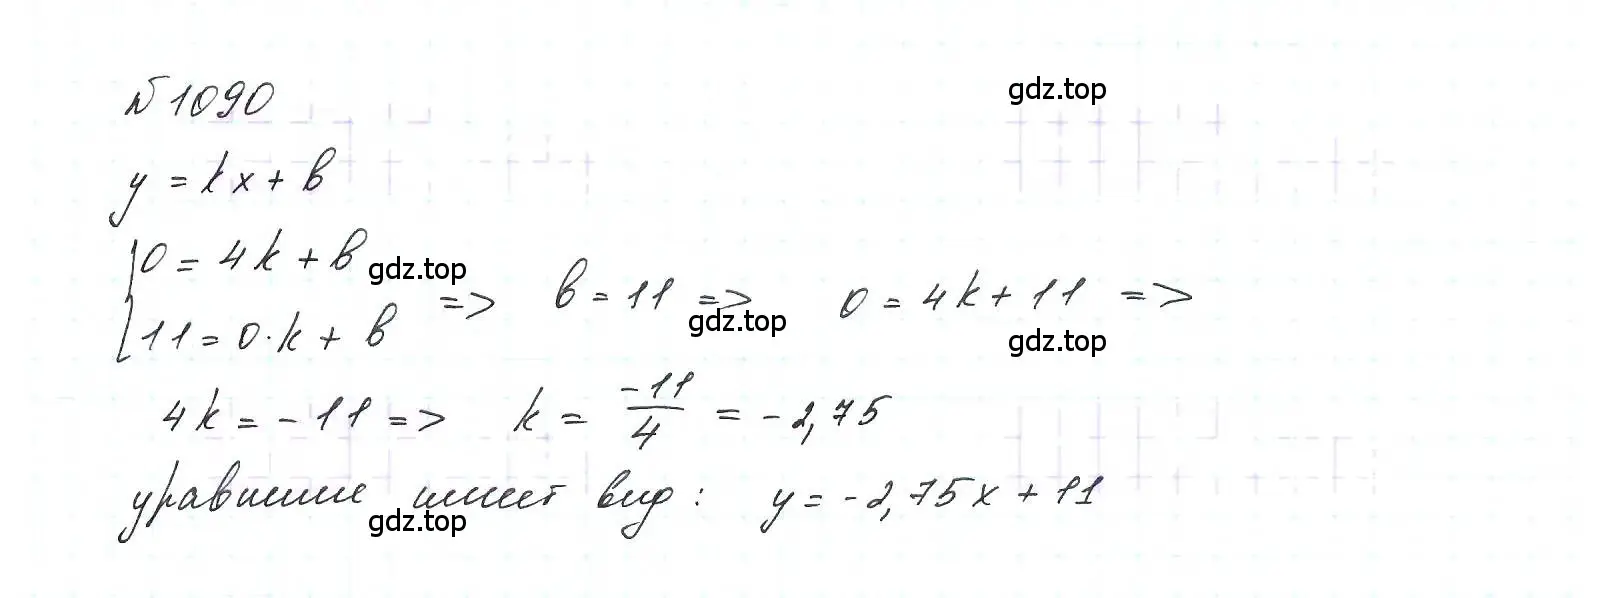 №1090
gdz.top
y = kx + b
{0 = 4k + b
gdz.top
{11 = 0·k + b => b = 11 => 0 = 4k + 11 =>
gdz.top
gdz.top
4k = -11 => k = -11/4 = -2,75
уравнение имеет вид: y = -2,75x + 11
gdz.top